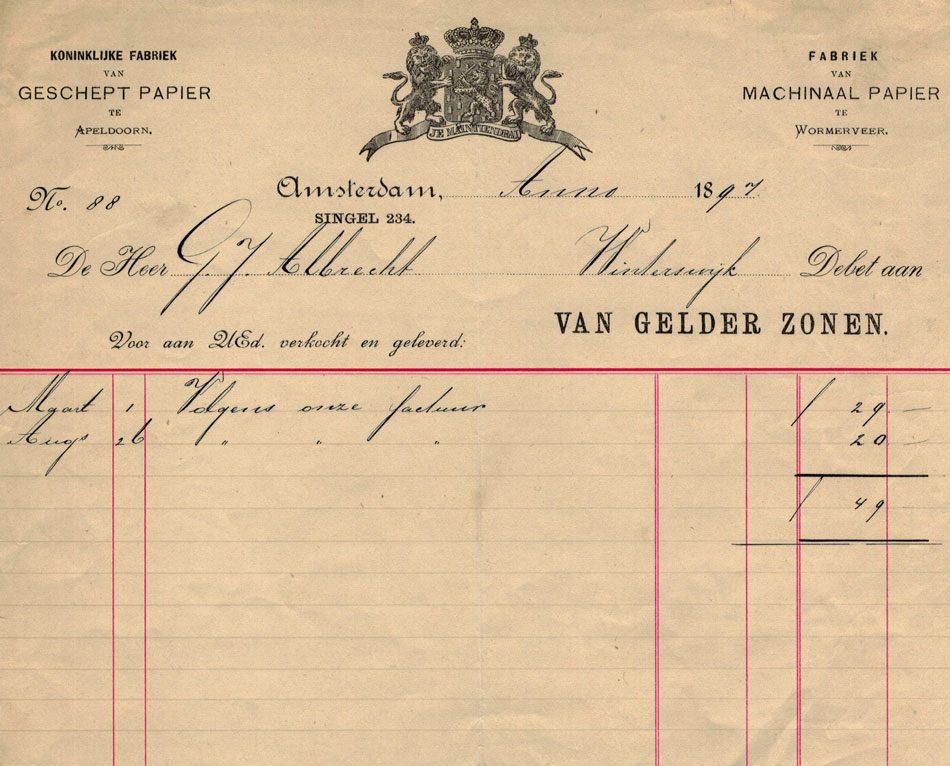 KONINKLIJKE FABRIEK
VAN
GESCHEPT PAPIER
TE
APELDOORN.
JE MAINTIENDRAI
FABRIEK
VAN
MACHINAAL PAPIER
TE
WORMERVEER.
No. 88
Amsterdam, Anno 1897.
SINGEL 234.
De Heer G. J. Albrecht Winterswijk Debet aan
VAN GELDER ZONEN.
Voor aan UEd. verkocht en geleverd:
Maart 1 Volgens onze factuur ƒ 29 —
Augs 26 " " " 20 —
ƒ 49